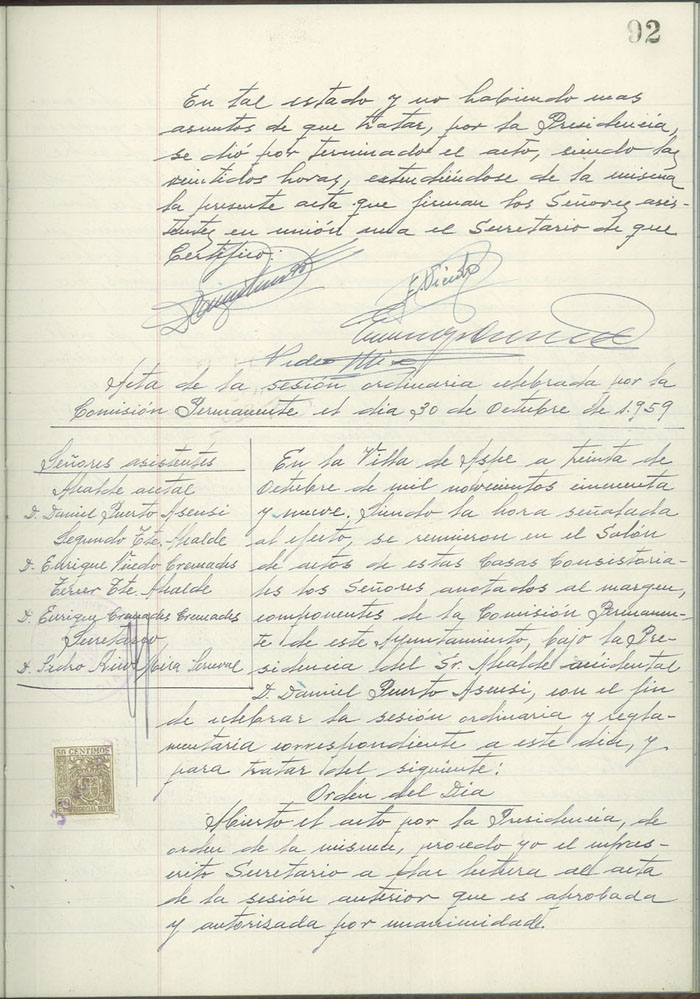 92
En tal estado y no habiendo mas
asuntos de que tratar, por la Presidencia,
se dió por terminado el acto, siendo las
veintidos horas, extendiéndose de la misma
la presente acta que firman los Señores asis-
tentes en unión mia el Secretario de que
Certifico:
E. Vicedo
Acta de la sesión ordinaria celebrada por la
Comisión Permanente el dia 30 de Octubre de 1.959
Señores asistentes
Alcalde acctal
D. Daniel Puerto Asensi
Segundo Tte. Alcalde
D. Enrique Vicedo Cremades
Tercer Tte. Alcalde
D. Enrique Cremades Cremades
Secretario
D. Pedro Mira
En la Villa de Aspe a treinta de
Octubre de mil novecientos cincuenta
y nueve. Siendo la hora señalada
al efecto, se reunieron en el Salón
de actos de estas Casas Consistoria-
les los Señores anotados al margen,
componentes de la Comisión Permanen-
te de este Ayuntamiento, bajo la Pre-
sidencia del Sr. Alcalde accidental
D. Daniel Puerto Asensi, con el fin
de celebrar la sesión ordinaria y regla-
mentaria correspondiente a este dia, y
para tratar del siguiente:
Orden del Dia
Abierto el acto por la Presidencia, de
orden de la misma, procedo yo el infras-
crito Secretario a dar lectura al acta
de la sesión anterior que es aprobada
y autorizada por unanimidad.
50 CENTIMOS